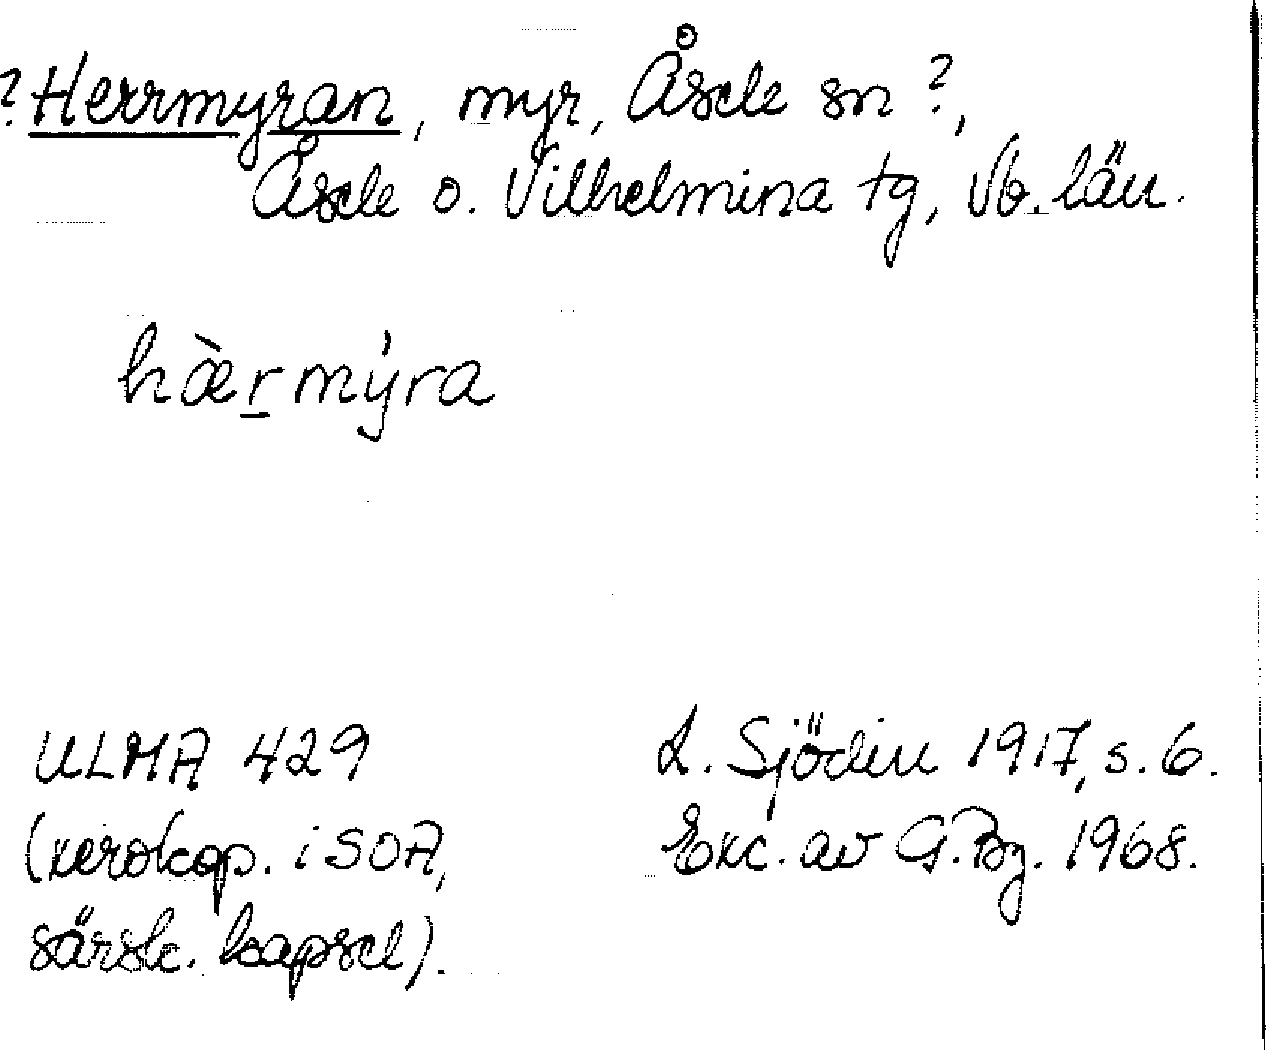 ? Herrmyran, myr, Åsele sn ?,
Åsele o. Vilhelmina tg, Vb. län.
hæ̀r̲mýra
ULMA 429
(xerokop. i SOA,
särsk. kapsel).
L. Sjödin 1917, s. 6.
Exc. av G. Bg. 1968.